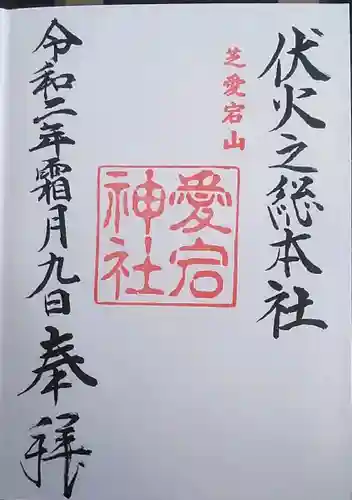 伏火之総本社
芝愛宕山
愛宕
神社
令和二年霜月九日
奉拝